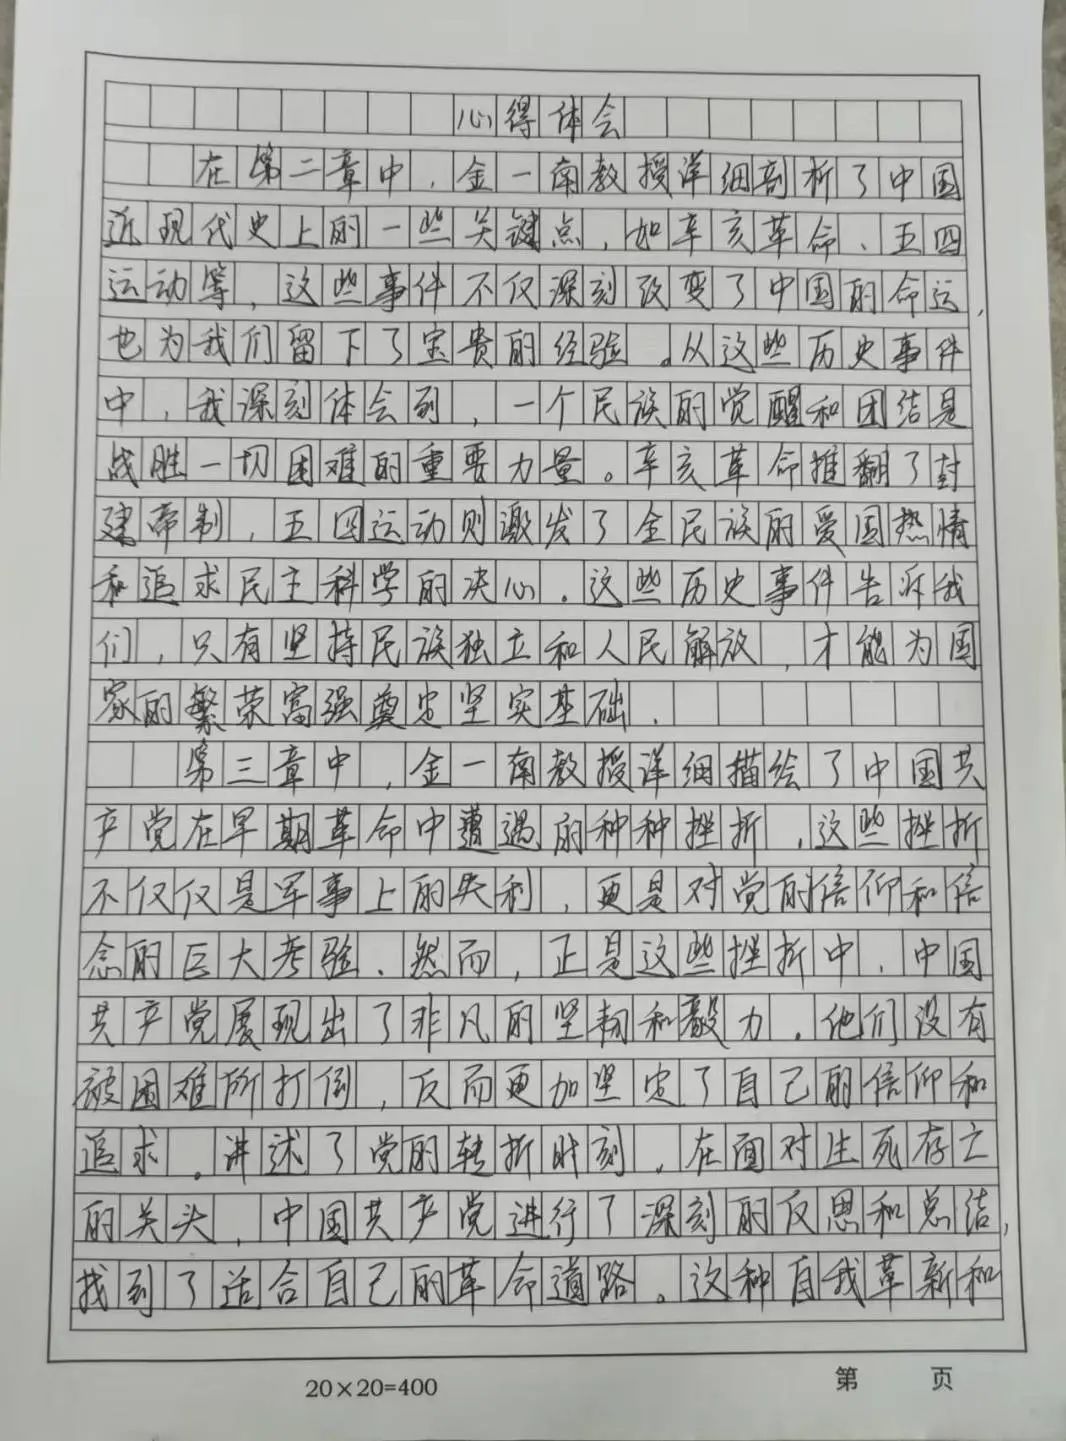 心得体会
在第二章中，金一南教授详细剖析了中国
近现代史上的一些关键点，如辛亥革命、五四
运动等，这些事件不仅深刻改变了中国的命运，
也为我们留下了宝贵的经验。从这些历史事件
中，我深刻体会到，一个民族的觉醒和团结是
战胜一切困难的重要力量。辛亥革命推翻了封
建帝制，五四运动则激发了全民族的爱国热情
和追求民主科学的决心。这些历史事件告诉我
们，只有坚持民族独立和人民解放，才能为国
家的繁荣富强奠定坚实基础．
第三章中，金一南教授详细描绘了中国共
产党在早期革命中遭遇的种种挫折．这些挫折
不仅仅是军事上的失利，更是对党的信仰和信
念的巨大考验．然而，正是这些挫折中．中国
共产党展现出了非凡的坚韧和毅力．他们没有
被困难所打倒，反而更加坚定了自己的信仰和
追求．讲述了党的转折时刻．在面对生死存亡
的关头，中国共产党进行了深刻的反思和总结，
找到了适合自己的革命道路。这种自我革新和
20×20=400
第 页